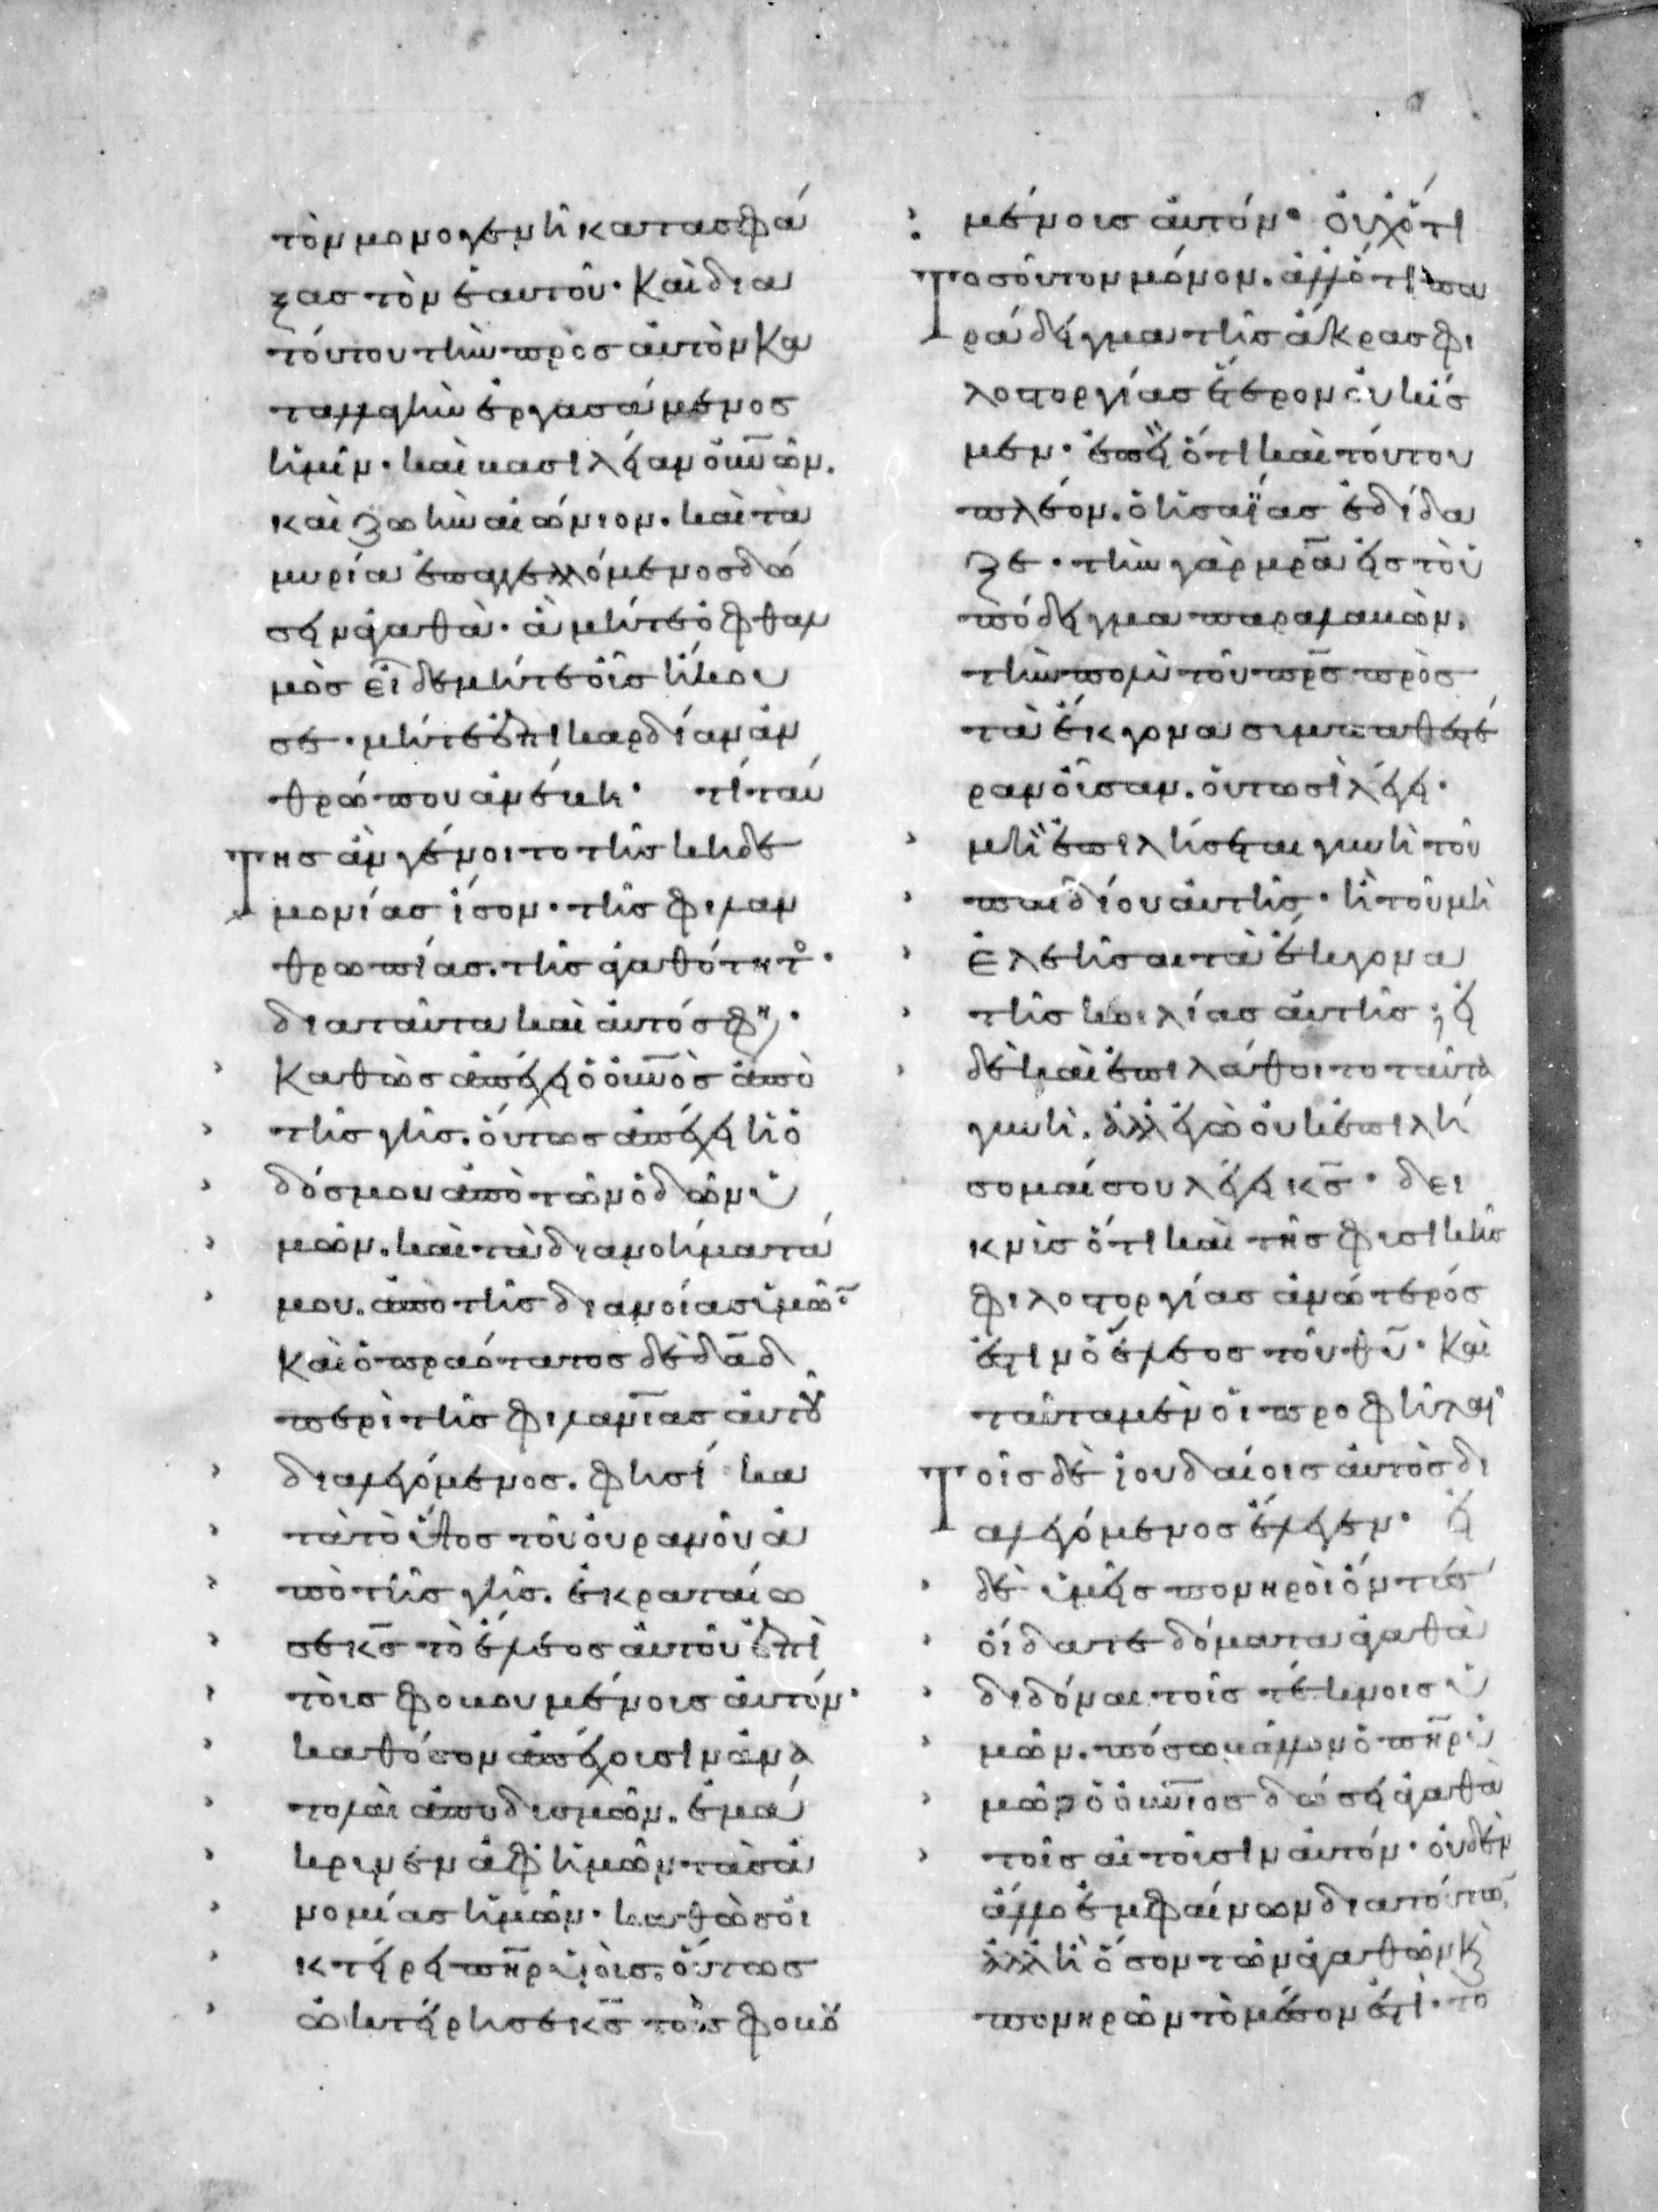 τὸν μονογενῆ κατασφά
ξας τὸν ἑαυτοῦ. Καὶ δια
τούτου τὴν πρὸς αὐτὸν κα
ταλλαγὴν ἐργασάμενος
ἡμῖν. καὶ βασιλείαν οὐνῶν.
καὶ ζωὴν αἰώνιον. καὶ τὰ
μυρία ἐπαγγελλόμενος δώ
σειν ἀγαθὰ. ἃ μήτε ὀφθαλ
μὸς εἶδε μήτε οὖς ἤκου
σε. μήτε ἐπὶ καρδίαν ἀν
θρώπου ἀνέβη. τί ταύ
Της ἂν γένοιτο τῆς κηδε
μονίας ἴσον. τῆς φιλαν
θρωπίας. τῆς ἀγαθότητος.
διαταῦτα καὶ αὐτός φη.
Καθὼς ἀπέχει ὁ οὐνὸς ἀπὸ
τῆς γῆς. οὕτως ἀπέχει ἡ ὁ
δός μου ἀπὸ τῶν ὁδῶν ὑ
μῶν. καὶ τὰ διανοήματά
μου. ἀπὸ τῆς διανοίας ὑμῶν
Καὶ ὁ πραότατος δὲ δᾱδ
περὶ τῆς φιλανίας αὐτοῦ
διαλεγόμενος. φησί κα
τὰ τὸ ὕψος τοῦ οὐρανοῦ ἀ
πὸ τῆς γῆς. ἐκραταίω
σε κς τὸ ἔλεος αὐτοῦ ἐπὶ
τοὺς φοβουμένους αὐτόν.
καθόσον ἀπέχουσιν ἀνα
τολαὶ ἀπὸ δυσμῶν. ἐμά
κρυνεν ἀφ ἡμῶν τὰς ἀ
νομίας ἡμῶν. καθὼς οἰ
κτείρει πηρ υἱοὺς. οὕτως
ὠκτείρησε κς τοὺς φοβου
μένους αὐτόν. οὐχότι
Τοσοῦτον μόνον. ἀλλότι πα
ράδειγμα τῆς ἄκρας φι
λοστοργίας ἕτερον οὐκ ἴσ
μεν. ἐπεὶ ὅτι καὶ τούτου
πλέον. ὁ ἠσαΐας ἐδίδα
ξε. τὴν γὰρ μρα εἰς τὸ ὑ
πόδειγμα παραλαβὼν.
τὴν πολὺ τοῦ πρς πρὸς
τὰ ἔκγονα συμπαθεστέ
ραν οὖσαν. οὕτωσὶ λέγει.
μὴ ἐπιλήσεται γυνὴ τοῦ
παιδίου αὐτῆς. ἢ τοῦ μὴ
ἐλεῆσαι τὰ ἔκγονα
τῆς κοιλίας αὐτῆς; εἰ
δὲ καὶ ἐπιλάθοιτο ταῦτα
γυνὴ. ἀλλ ἐγὼ οὐκ ἐπιλή
σομαί σου λέγει κς. δει
κνὺς ὅτι καὶ τῆς φυσικῆς
φιλοστοργίας ἀνώτερός
ἐστιν ὁ ἔλεος τοῦ θυ. Καὶ
ταῦτα μὲν οἱ προφῆται
Τοῖς δὲ ἰουδαίοις αὐτὸς δι
αλεγόμενος ἔλεγεν. εἰ
δὲ ὑμεῖς πονηροὶ ὄντες
οἴδατε δόματα ἀγαθὰ
διδόναι τοῖς τέκνοις ὑ
μῶν. πόσω μᾶλλον ὁ πηρ ὑ
μῶν ὁ οὐνιος δώσει ἀγαθὰ
τοῖς αἰτοῦσιν αὐτόν. οὐδὲν
ἄλλο ἐμφαίνων διατούτων,
ἀλλ ἢ ὅσον τῶν ἀγαθῶν κ
πονηρῶν τὸ μέσον ἐστί. το